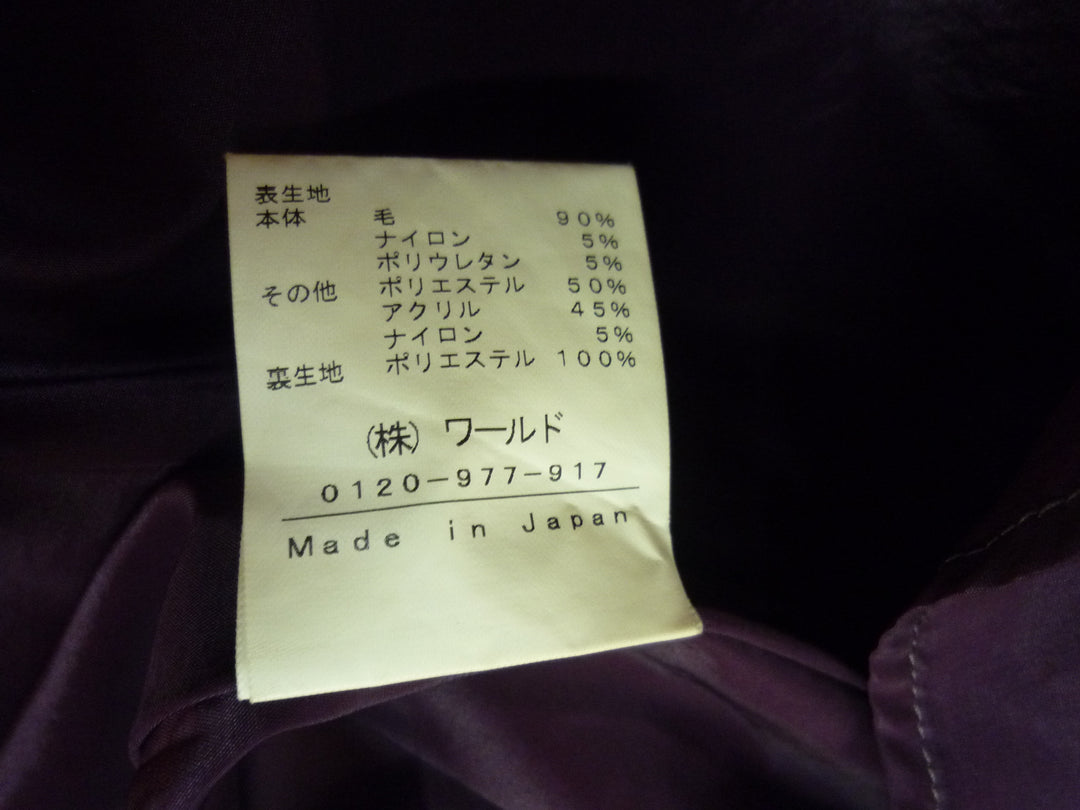 表生地
本体 毛 90%
ナイロン 5%
ポリウレタン 5%
その他 ポリエステル 50%
アクリル 45%
ナイロン 5%
裏生地 ポリエステル 100%
(株) ワールド
0120-977-917
Made in Japan